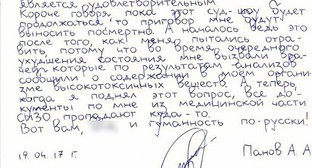 является удовлетворительным.
Короче говоря, пока это суд-шоу будет
продолжаться, то приговор мне будут
выносить посмертно. А началось ведь это
после того, как меня пытались отра-
вить, потому что во время очередного
ухудшения состояния мне вызвали вра-
чей, которые по результатам анализов
сообщили о содержании в моем органи-
зме высокотоксичных веществ. А теперь,
когда я поднял этот вопрос, все до-
кументы по мне из медицинской части
СИЗО пропадают куда-то.
Вот вам, и гуманность по-русски!
19.04.17 г. Панов А.А